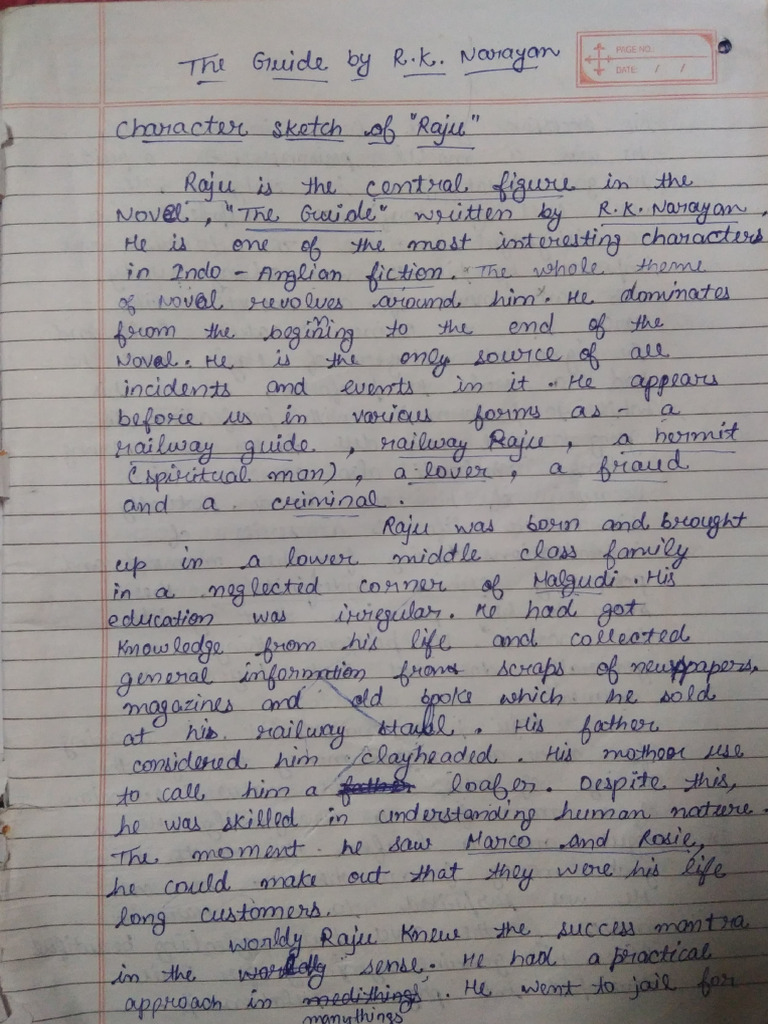 The Guide by R.K. Narayan
PAGE NO.
DATE: / /
Character sketch of "Raju"
Raju is the central figure in the
Novel, "The Guide" written by R.K. Narayan.
He is one of the most interesting characters
in Indo - Anglian fiction. The whole theme
of Novel revolves around him. He dominates
from the beginning to the end of the
Novel. He is the only source of all
incidents and events in it. He appears
before us in various forms as - a
railway guide, railway Raju, a hermit
(spiritual man), a lover, a fraud
and a criminal.
Raju was born and brought
up in a lower middle class family
in a neglected corner of Malgudi. His
education was irregular. He had got
knowledge from his life and collected
general information from scraps of newspapers,
magazines and old books which he sold
at his railway stall. His father
considered him clayheaded. His mother use
to call him a father loafer. Despite this,
he was skilled in understanding human nature.
The moment he saw Marco and Rosie,
he could make out that they were his life
long customers.
Worldy Raju knew the success mantra
in the worldly sense. He had a practical
approach in . He went to jail for
manythings